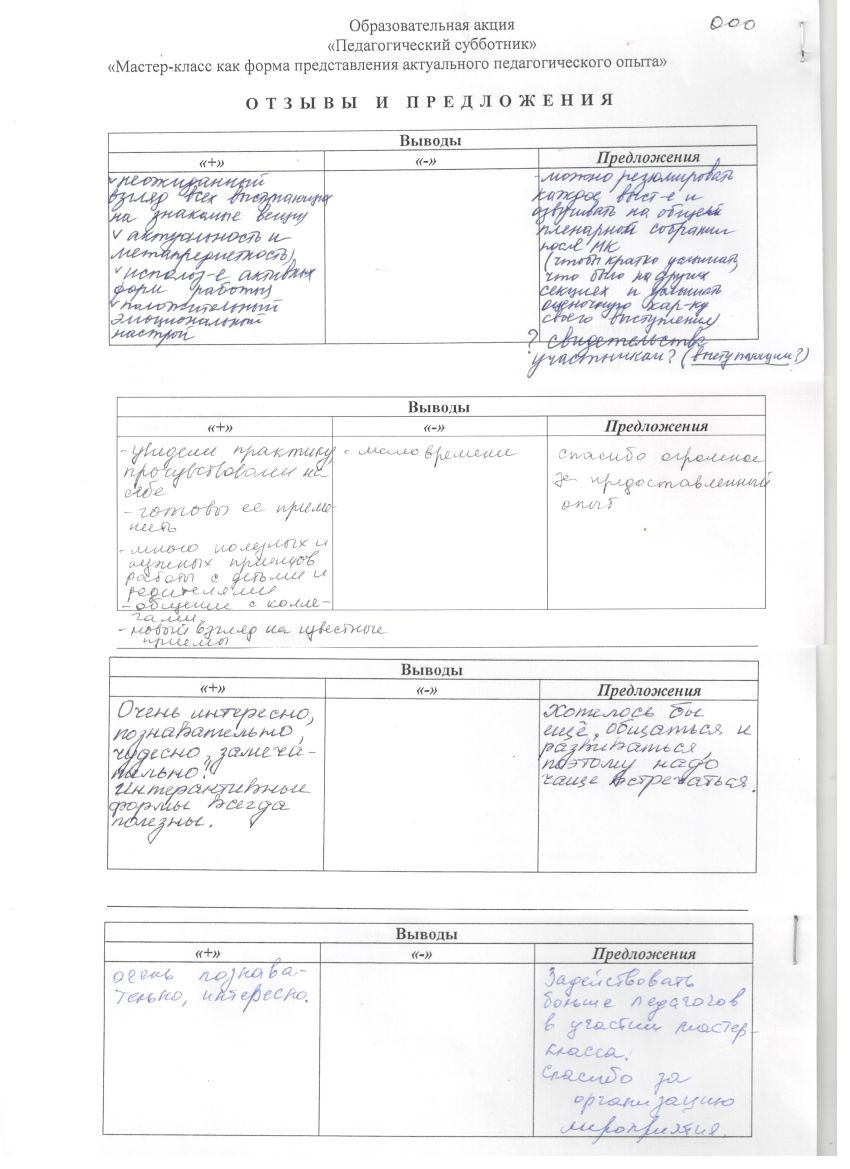 Образовательная акция
ООО
«Педагогический субботник»
«Мастер-класс как форма представления актуального педагогического опыта»
ОТЗЫВЫ И ПРЕДЛОЖЕНИЯ
Выводы
«+» «-» Предложения
✓ неожиданный
взгляд всех выступающих
на знакомые вещи
✓ актуальность и
метапредметность
✓ использ-е активных
форм работы
✓ положительный
эмоциональный
настрой
- можно резюмировать
каждое выст-е и
озвучивать на общем
пленарном собрании
после МК
(чтобы кратко услышать,
что было на других
секциях и услышать
оценочную хар-ку
своего выступления)
? свидетельства
участникам? (выступающим?)
Выводы
«+» «-» Предложения
- увидели практику,
прочувствовали на
себе
- готовы ее приме-
нить
- много полезных и
нужных приемов
работы с детьми и
родителями
- общение с колле-
гами.
- новый взгляд на известные
приемы
- мало времени
спасибо огромное
за предоставленный
опыт
Выводы
«+» «-» Предложения
Очень интересно,
познавательно,
чудесно, замеча-
тельно!
Интерактивные
формы всегда
полезны.
Хотелось бы
ещё общаться и
развиваться,
поэтому надо
чаще встречаться.
Выводы
«+» «-» Предложения
очень познава-
тельно, интересно.
Задействовать
больше педагогов
в участии мастер-
класса.
Спасибо за
организацию
мероприятия.